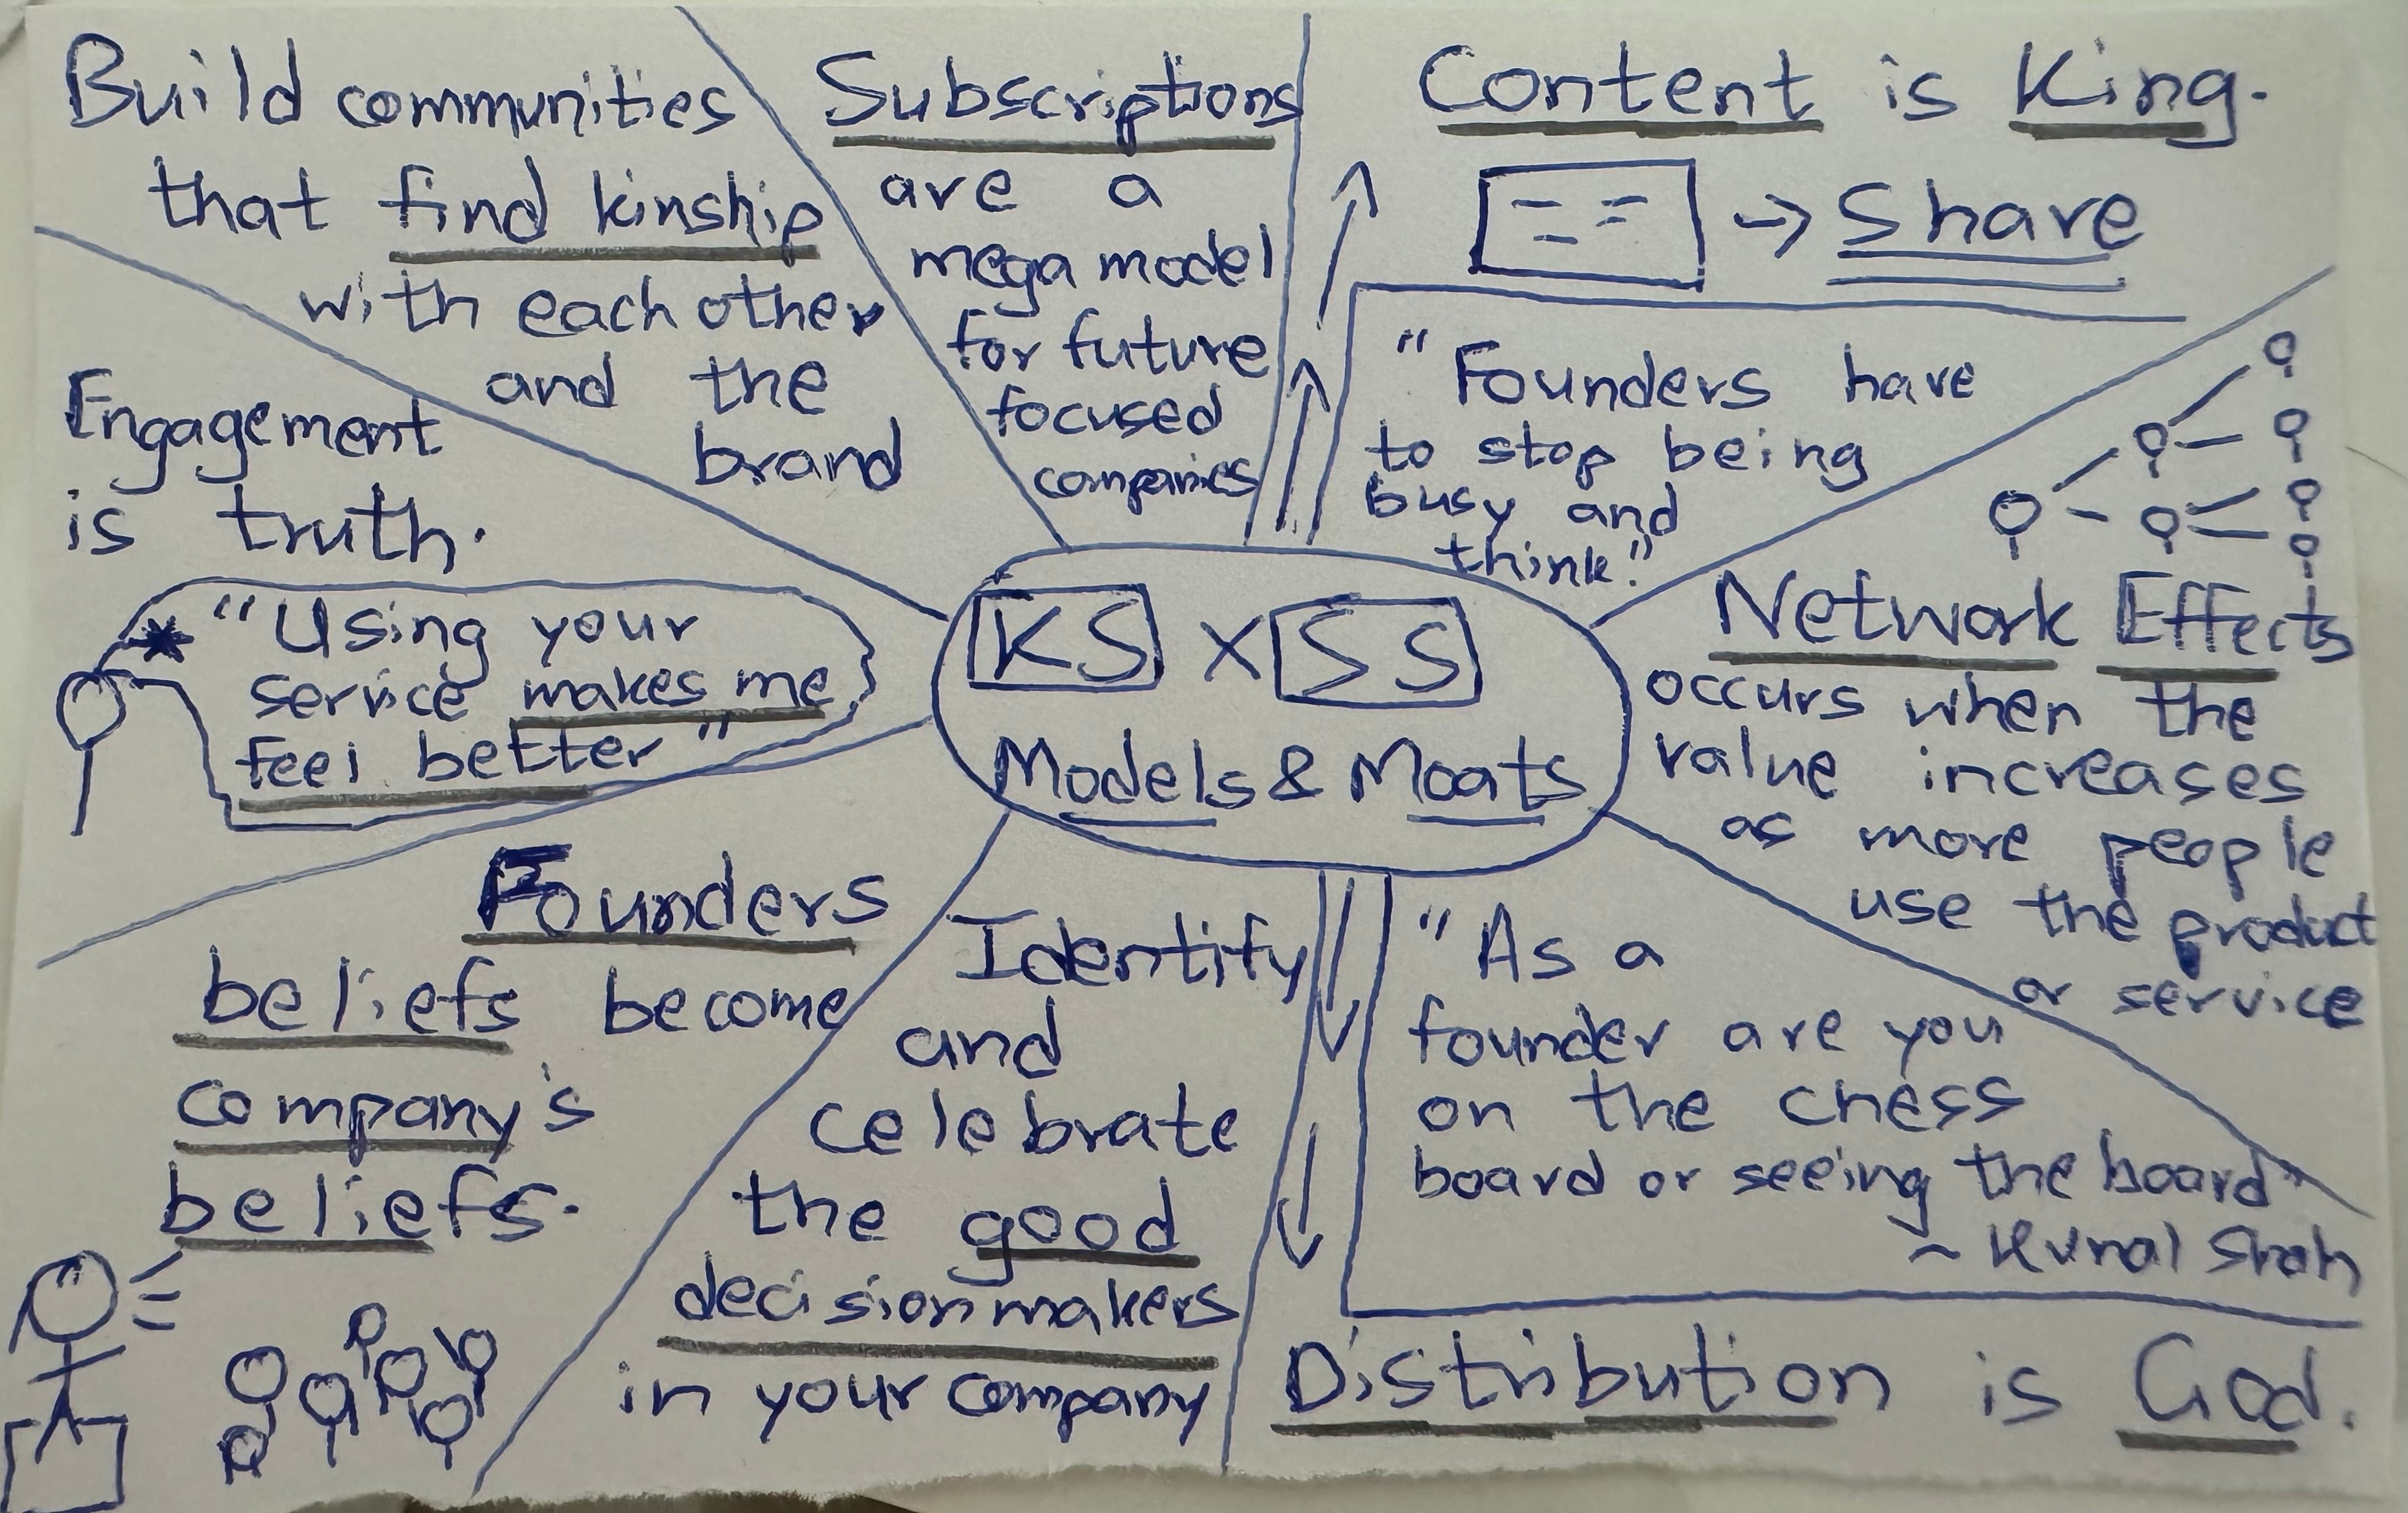 Build communities
that find kinship
with each other
and the
brand
Subscriptions
are a
mega model
for future
focused
companies
Content is King.
→ Share
"Founders have
to stop being
busy and
think."
Network Effects
occurs when the
value increases
as more people
use the product
or service
"As a
founder are you
on the chess
board or seeing the board"
~ Kunal Shah
Distribution is God.
Identify
and
celebrate
the good
decision makers
in your company
Founders
beliefs become
company's
beliefs.
Engagement
is truth.
* "Using your
service makes me
feel better"
KS x ΣS
Models & Moats